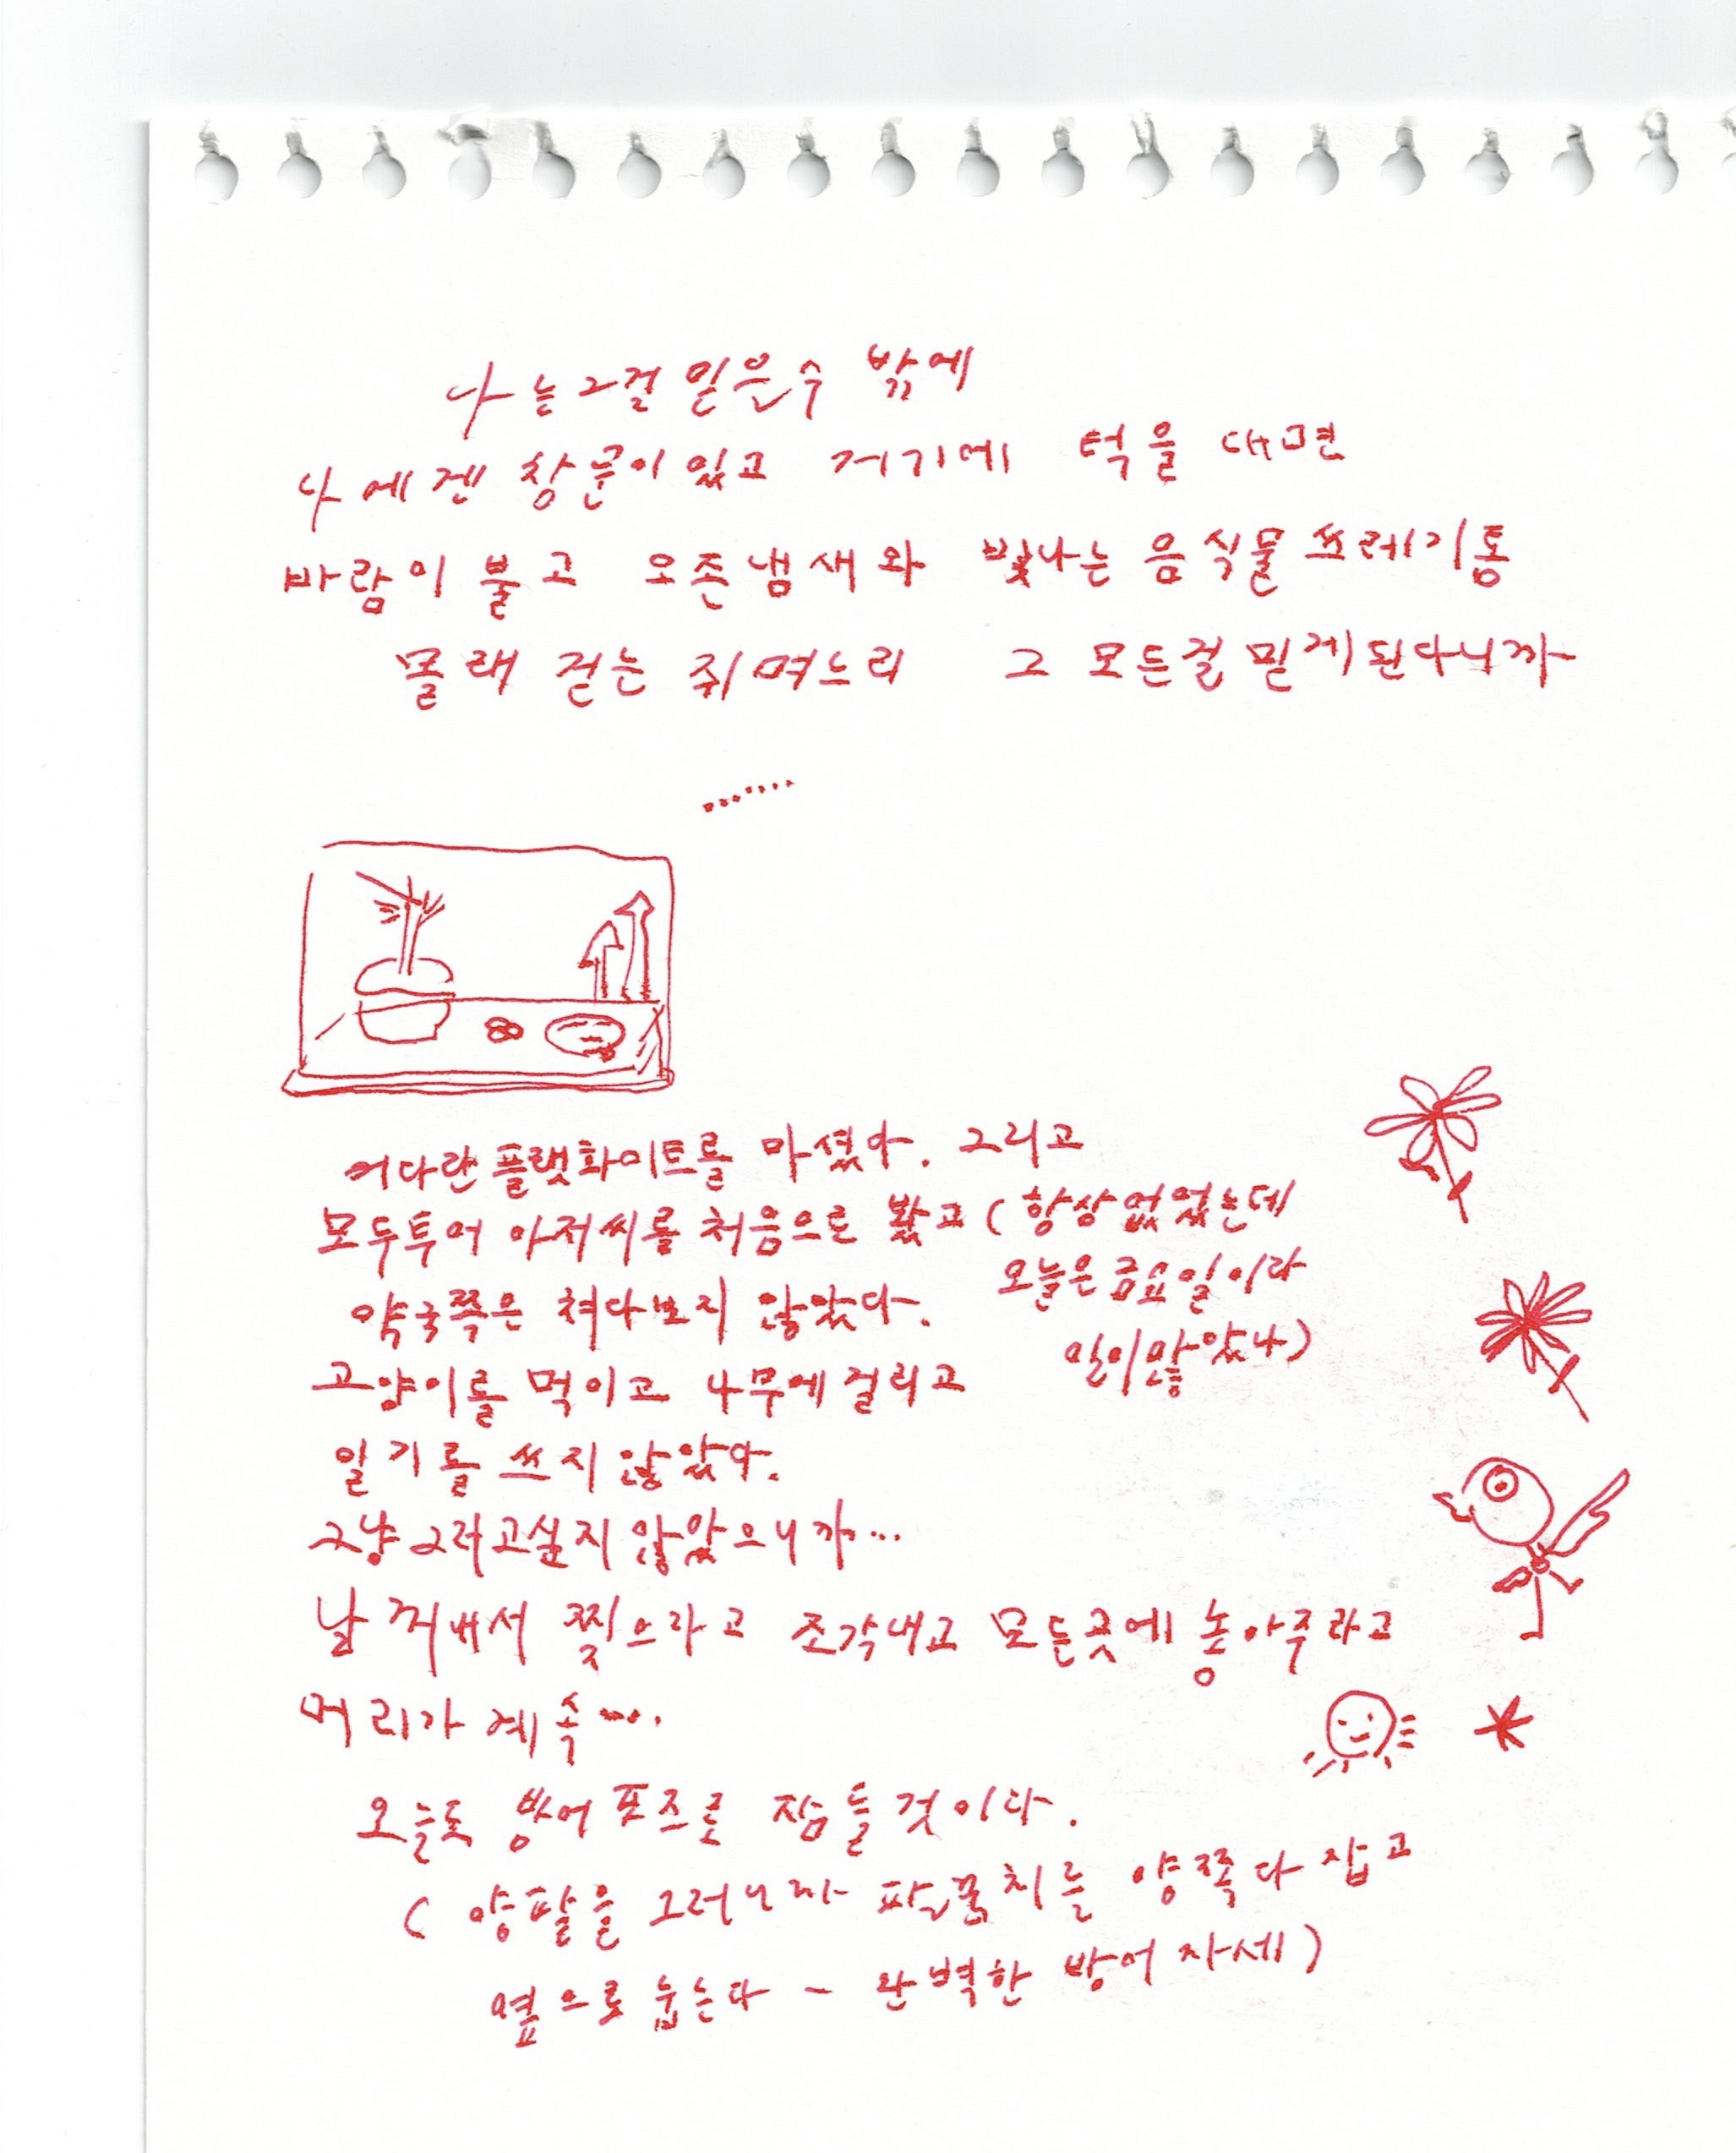 나는 그걸 믿을 수 밖에
나에겐 창문이 있고 거기에 턱을 대면
바람이 불고 오존냄새와 빛나는 음식물 쓰레기통
몰래 걷는 쥐며느리 그 모든걸 믿게된다니까
.......
커다란 플랫화이트를 마셨다. 그리고
모두투어 아저씨를 처음으로 봤고 (항상없었는데
오늘은 금요일이라
일이 많았나)
약국쪽은 쳐다보지 않았다.
고양이를 먹이고 나무에 걸리고
일기를 쓰지 않았다.
그냥 그러고싶지 않았으니까...
날 꺼내서 찢으라고 조각내고 모든곳에 놓아주라고
머리가 계속....
오늘도 방어 포즈로 잠들 것이다.
( 양팔을 그러니까 팔꿈치를 양쪽다 잡고
옆으로 눕는다 - 완벽한 방어 자세)